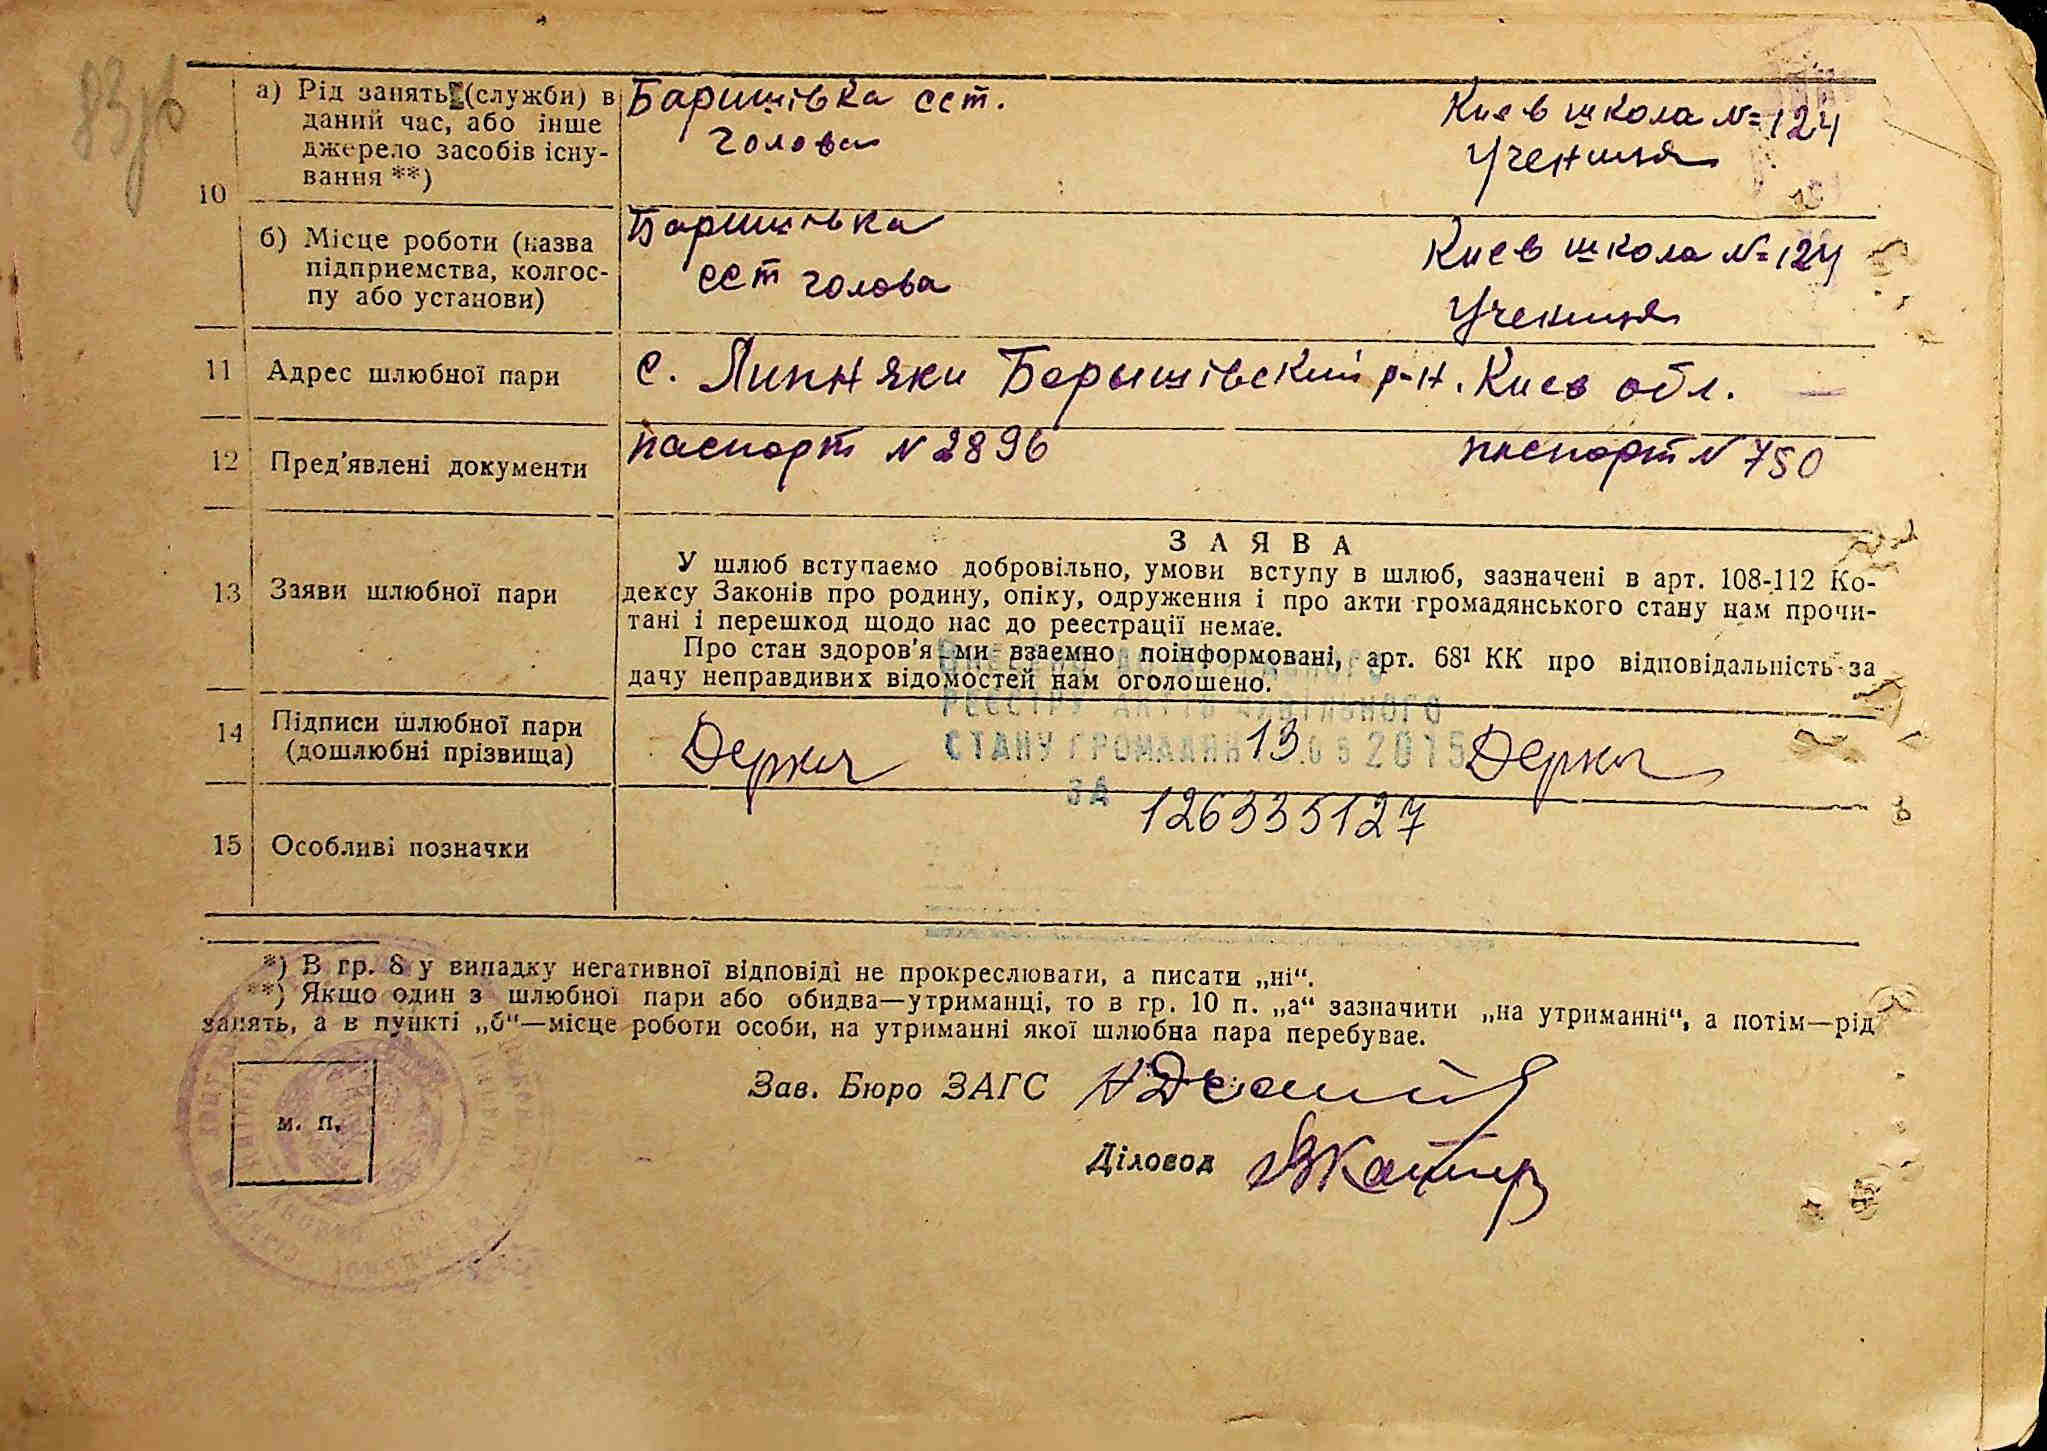 83зв
10
а) Рід занять (служби) в
даний час, або інше
джерело засобів існу-
вання **)
Баришівка сст.
голова
Киев школа №124
Ученица
б) Місце роботи (назва
підприємства, колгос-
пу або установи)
Баришівка
сст голова
Киев школа №124
Ученица
11 Адрес шлюбної пари
с. Липняки Барышівский р-н. Киев обл.
12 Пред'явлені документи
паспорт N 2896
паспорт N 750
13 Заяви шлюбної пари
ЗАЯВА
У шлюб вступаємо добровільно, умови вступу в шлюб, зазначені в арт. 108-112 Ко-
дексу Законів про родину, опіку, одруження і про акти громадянського стану нам прочи-
тані і перешкод щодо нас до реєстрації немає.
Про стан здоров'я ми взаємно поінформовані, арт. 68¹ КК про відповідальність за
дачу неправдивих відомостей нам оголошено.
РЕЄСТРУ АКТІВ ЦИВІЛЬНОГО
СТАНУ ГРОМАДЯН 13.05 2015
ЗА 126335127
14 Підписи шлюбної пари
(дошлюбні прізвища)
Деркач
Деркач
15 Особливі позначки
*) В гр. 8 у випадку негативної відповіді не прокреслювати, а писати „ні“.
**) Якщо один з шлюбної пари або обидва—утриманці, то в гр. 10 п. „а“ зазначити „на утриманні“, а потім—рід
занять, а в пункті „б“—місце роботи особи, на утриманні якої шлюбна пара перебуває.
м. п.
Зав. Бюро ЗАГС
Діловод